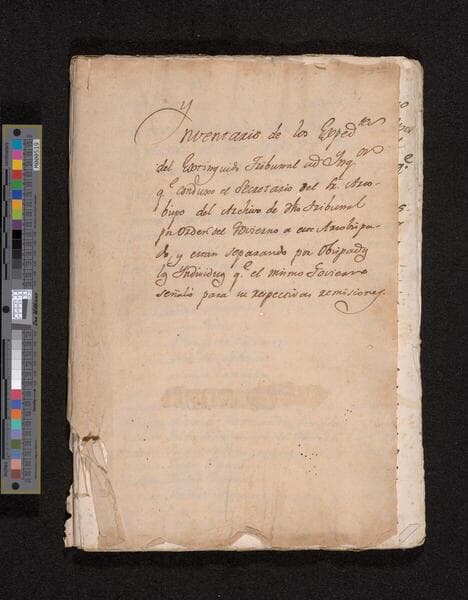 Ynventario de los Exped.tes
del Extinguido Tribunal de Ynq.on
q.e conduxo el Secretario del Sr. Arzo-
bispo del Archivo de dho Tribunal
pr. Orden del Govierno a este Arzobispa-
do, y estan separando por Obispados
los Individuos q.e el mismo Govierno
señaló para su respectivas remisiones.
M000519